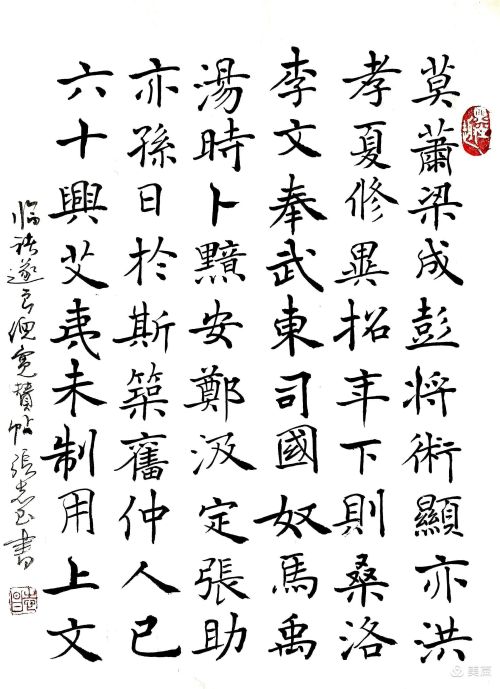 莫蕭梁成彭將術顯亦洪
孝夏修異招年下則桑洛
李文奉武東司國奴馬禹
湯時卜黯安鄭汲定張助
亦孫日於斯築舊仲人已
六十興艾夷未制用上文
臨褚遂良倪寬贊帖張志玉書
美篇